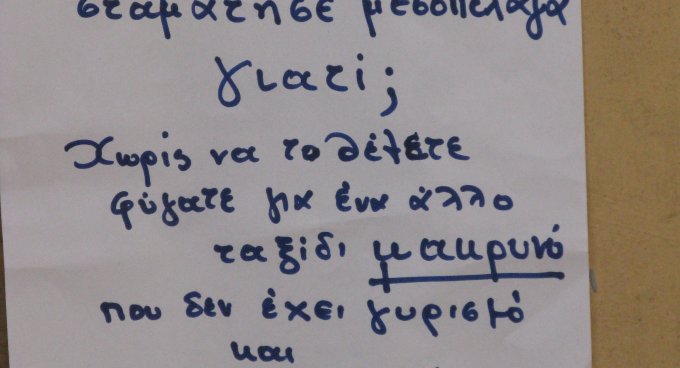 σταμάτησε μεσοπέλαγα
γιατί;
Χωρίς να το θέλετε
φύγατε για ένα άλλο
ταξίδι μακρυνό
που δεν έχει γυρισμό
και